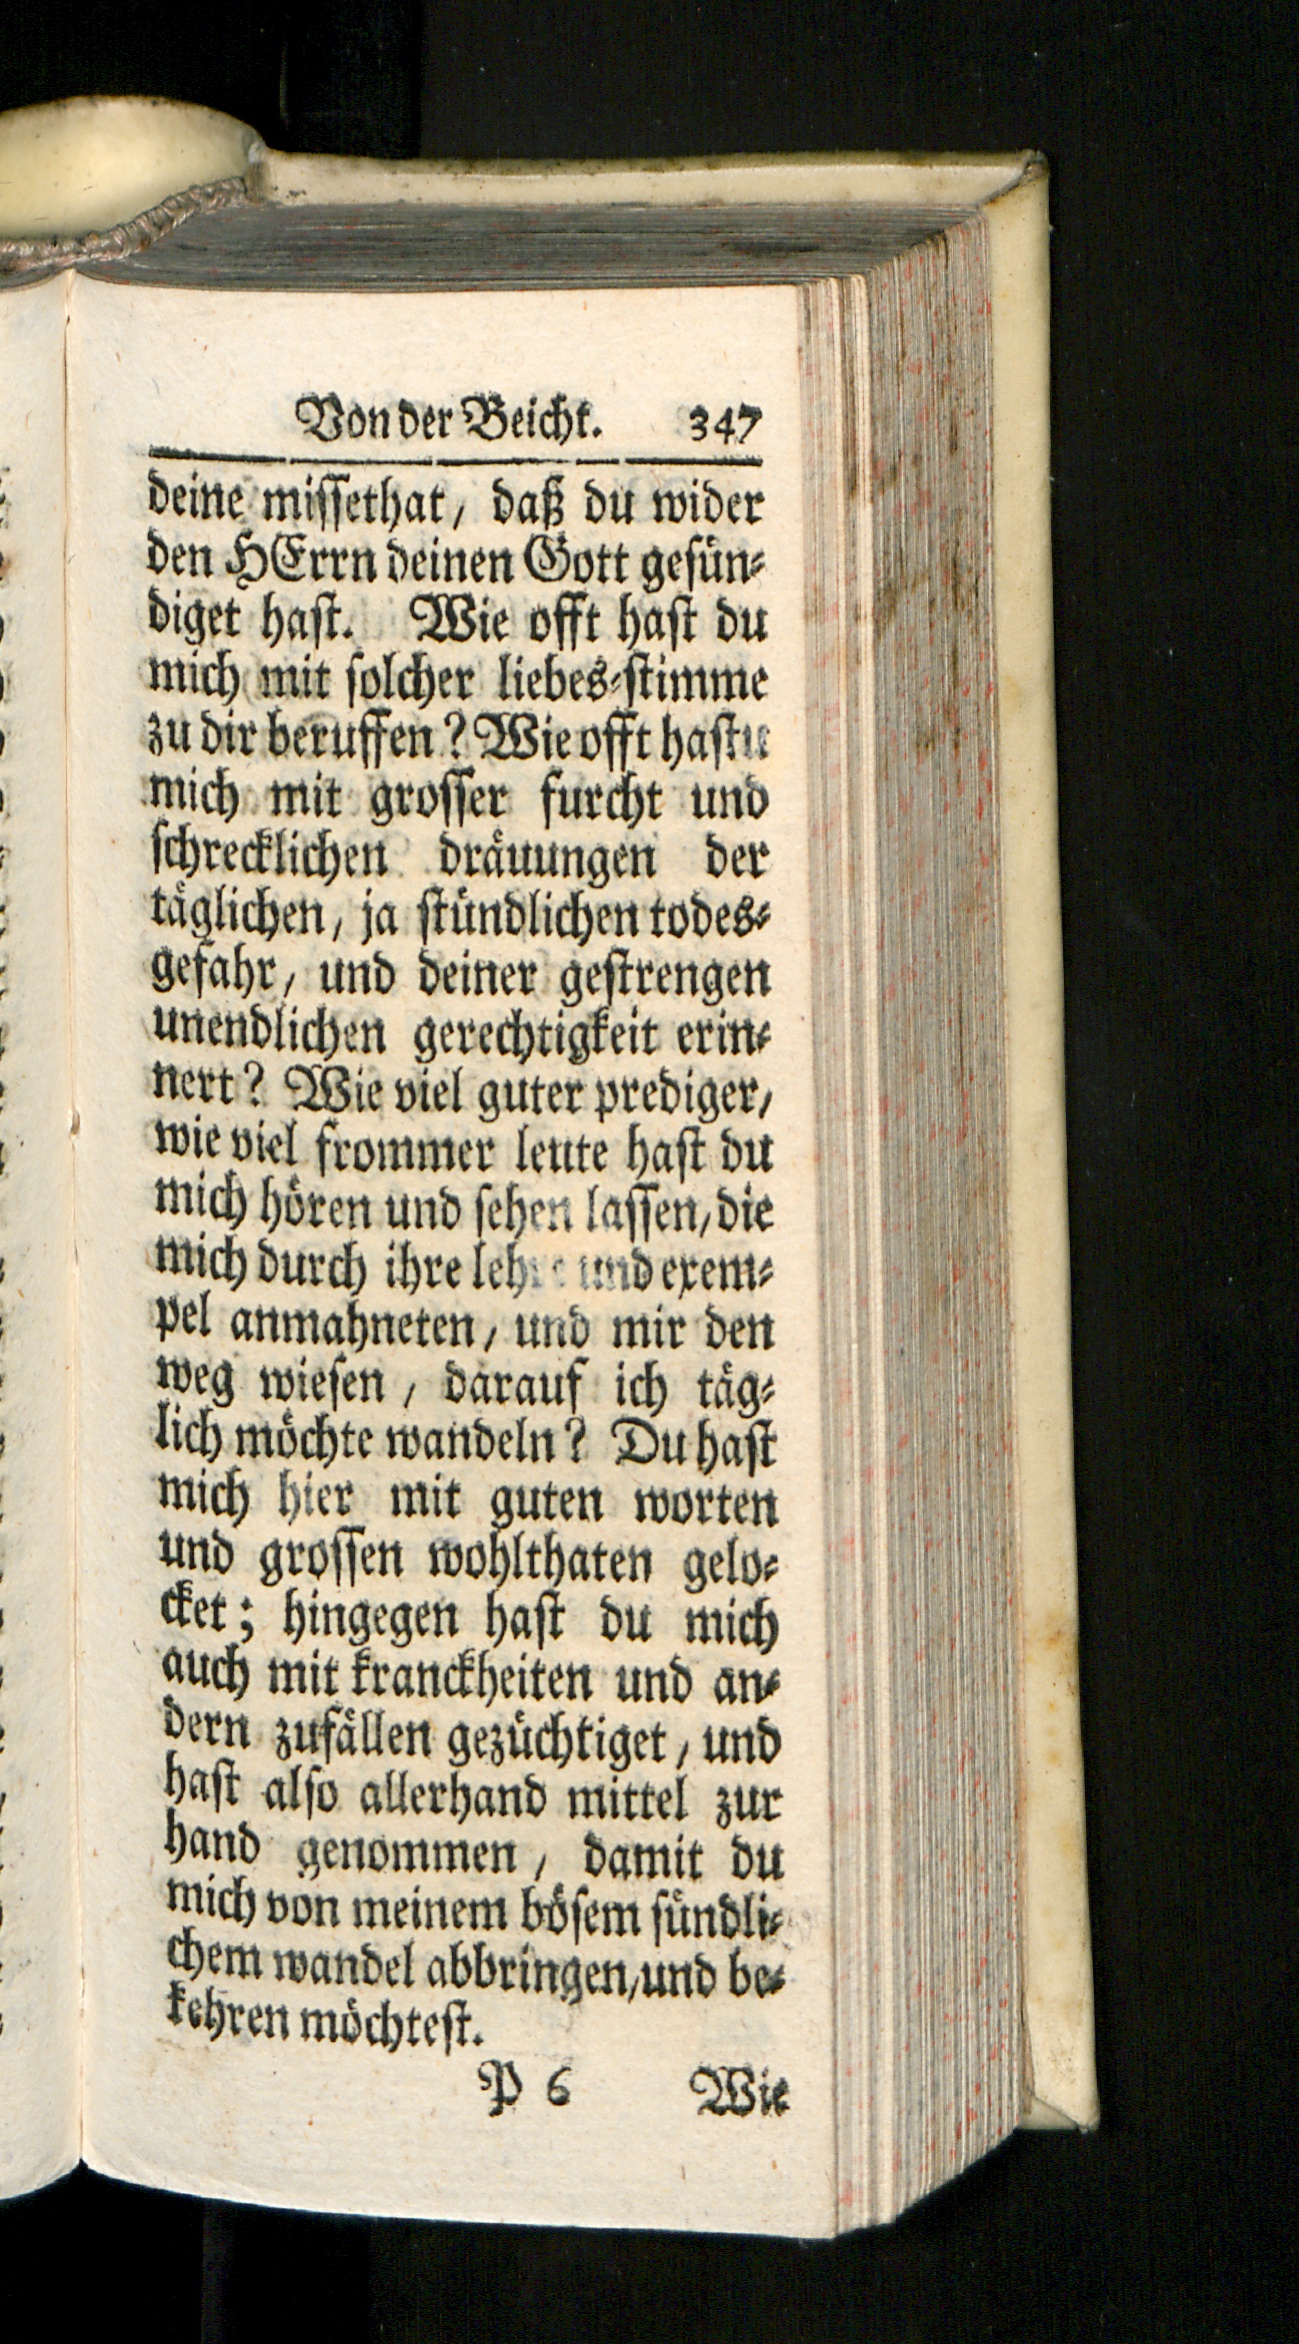 Von der Beicht. 347
deine missethat, daß du wider
den HErrn deinen Gott gesün-
diget hast. Wie offt hast du
mich mit solcher liebes-stimme
zu dir beruffen? Wie offt hastu
mich mit grosser furcht und
schrecklichen dräuungen der
täglichen, ja stündlichen todes-
gefahr, und deiner gestrengen
unendlichen gerechtigkeit erin-
nert? Wie viel guter prediger,
wie viel frommer leute hast du
mich hören und sehen lassen, die
mich durch ihre lehre und exem-
pel anmahneten, und mir den
weg wiesen, darauf ich täg-
lich möchte wandeln? Du hast
mich hier mit guten worten
und grossen wohlthaten gelo-
cket; hingegen hast du mich
auch mit kranckheiten und an-
dern zufällen gezüchtiget, und
hast also allerhand mittel zur
hand genommen, damit du
mich von meinem bösem sündli-
chem wandel abbringen, und be-
kehren möchtest.
P 6 Wie